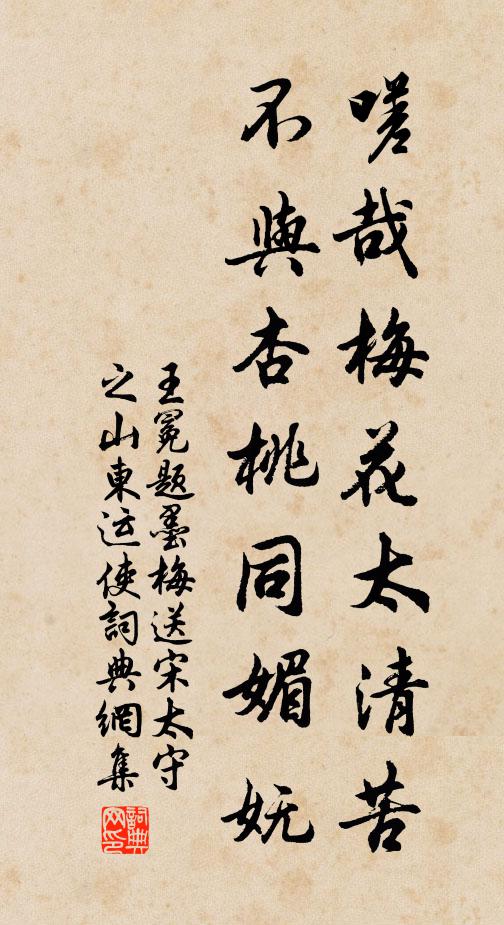 嗟哉梅花太清苦
不與杏桃同媚嫵
王冕題墨梅送宋太守
之山東运使詞典網集
詞典
网印